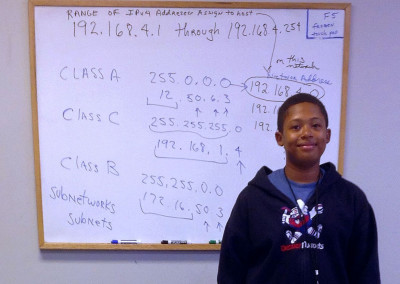 RANGE OF IPv4 Addresses Assign to Host
192.168.4.1 through 192.168.4.254
F5
in this network
network Address
CLASS A 255.0.0.0 192.168.4.0
12. 50.6.3 192.16
CLASS C 255.255.255.0 192.
192.168.1.4
CLASS B
255.255.0.0
SubNetworks 172.16.50.3
Subnets